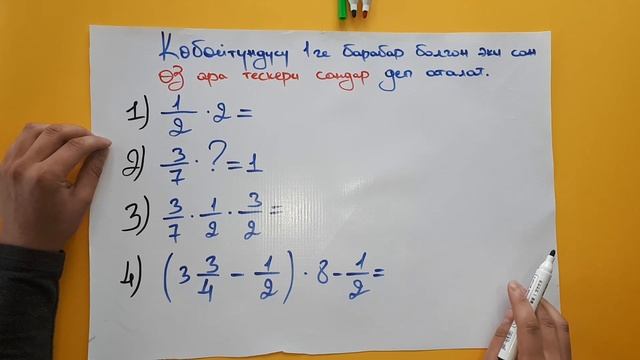 Көбөйтүндүсү 1 ге барабар болгон эки сан
өз ара тескери сандар деп аталат.
1) 1/2 · 2 =
2) 3/7 · ? = 1
3) 3/7 · 1/2 · 3/2 =
4) (3 3/4 - 1/2) · 8 - 1/2 =